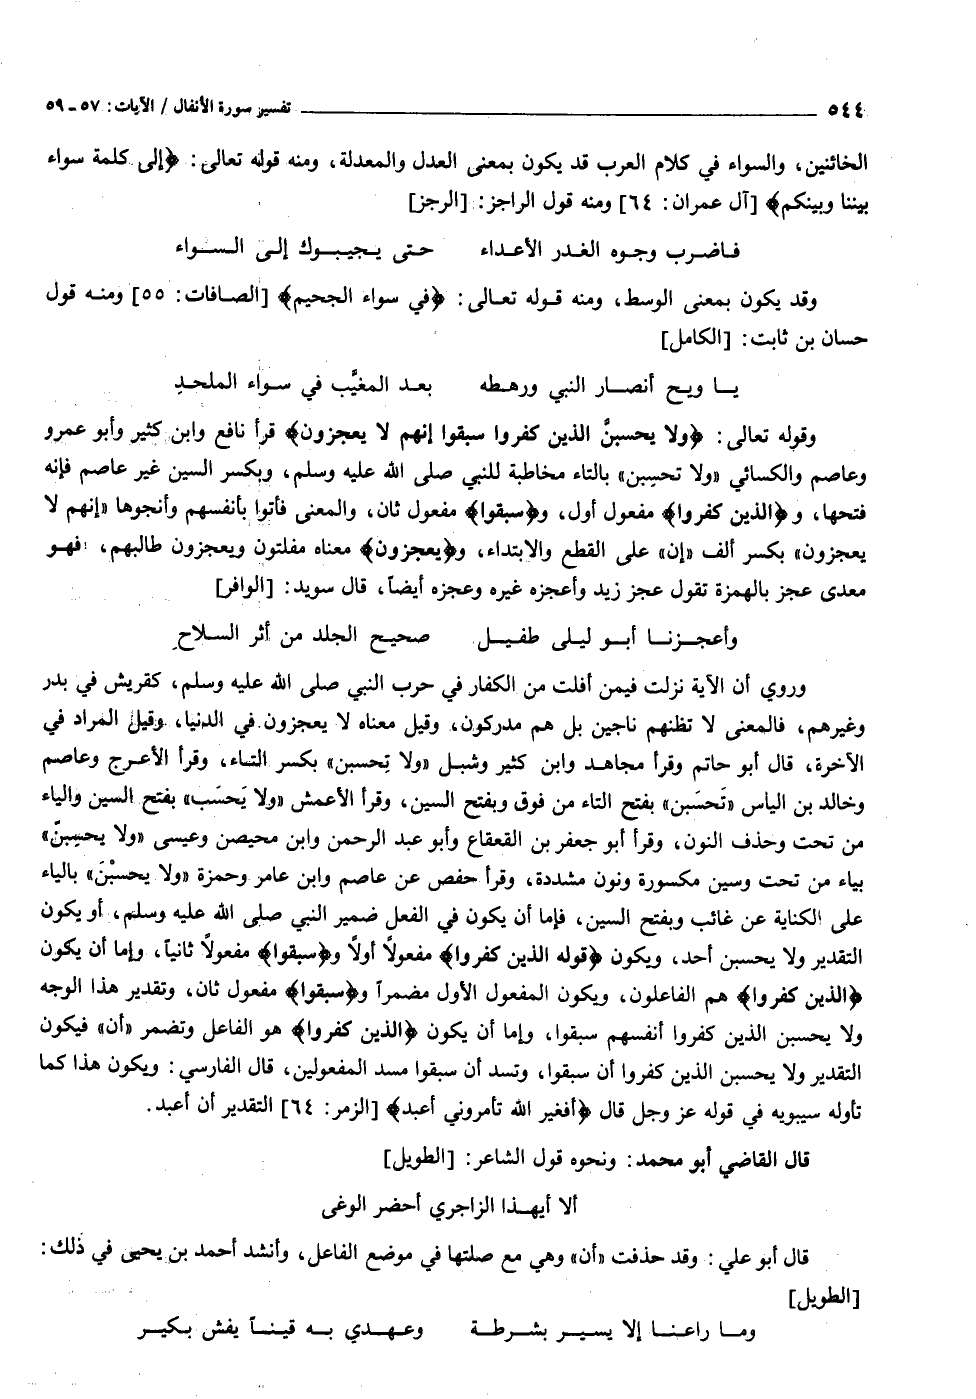 ٥٤٤ تفسير سورة الأنفال / الآيات: ٥٧ - ٥٩
الخائنين، والسواء في كلام العرب قد يكون بمعنى العدل والمعدلة، ومنه قوله تعالى: ﴿إلى كلمة سواء
بيننا وبينكم﴾ [آل عمران: ٦٤] ومنه قول الراجز: [الرجز]
فاضرب وجوه الغدر الأعداء حتى يجيبوك إلى السواء
وقد يكون بمعنى الوسط، ومنه قوله تعالى: ﴿في سواء الجحيم﴾ [الصافات: ٥٥] ومنه قول
حسان بن ثابت: [الكامل]
يا ويح أنصار النبي ورهطه بعد المغيَّب في سواء الملحدِ
وقوله تعالى: ﴿ولا يحسبنَّ الذين كفروا سبقوا إنهم لا يعجزون﴾ قرأ نافع وابن كثير وأبو عمرو
وعاصم والكسائي «ولا تحسِبن» بالتاء مخاطبة للنبي صلى الله عليه وسلم، وبكسر السين غير عاصم فإنه
فتحها، و﴿الذين كفروا﴾ مفعول أول، و﴿سبقوا﴾ مفعول ثان، والمعنى فأتوا بأنفسهم وأنجوها «إنهم لا
يعجزون» بكسر ألف «إن» على القطع والابتداء، و﴿يعجزون﴾ معناه مفلتون ويعجزون طالبهم، فهو
معدى عجز بالهمزة تقول عجز زيد وأعجزه غيره وعجزه أيضاً، قال سويد: [الوافر]
وأعجزنا أبو ليلى طفيل صحيح الجلد من أثر السلاحِ
وروي أن الآية نزلت فيمن أفلت من الكفار في حرب النبي صلى الله عليه وسلم، كقريش في بدر
وغيرهم، فالمعنى لا تظنهم ناجين بل هم مدركون، وقيل معناه لا يعجزون في الدنيا، وقيل المراد في
الآخرة، قال أبو حاتم وقرأ مجاهد وابن كثير وشبل «ولا تِحسبن» بكسر التاء، وقرأ الأعرج وعاصم
وخالد بن الياس «تَحسَبن» بفتح التاء من فوق وبفتح السين، وقرأ الأعمش «ولا يَحسَب» بفتح السين والياء
من تحت وحذف النون، وقرأ أبو جعفر بن القعقاع وأبو عبد الرحمن وابن محيصن وعيسى «ولا يحسِبنّ»
بياء من تحت وسين مكسورة ونون مشددة، وقرأ حفص عن عاصم وابن عامر وحمزة «ولا يحسبْنَ» بالياء
على الكناية عن غائب وبفتح السين، فإما أن يكون في الفعل ضمير النبي صلى الله عليه وسلم، أو يكون
التقدير ولا يحسبن أحد، ويكون ﴿قوله الذين كفروا﴾ مفعولًا أولًا و﴿سبقوا﴾ مفعولًا ثانياً، وإما أن يكون
﴿الذين كفروا﴾ هم الفاعلون، ويكون المفعول الأول مضمراً و﴿سبقوا﴾ مفعول ثان، وتقدير هذا الوجه
ولا يحسبن الذين كفروا أنفسهم سبقوا، وإما أن يكون ﴿الذين كفروا﴾ هو الفاعل وتضمر «أن» فيكون
التقدير ولا يحسبن الذين كفروا أن سبقوا، وتسد أن سبقوا مسد المفعولين، قال الفارسي: ويكون هذا كما
تأوله سيبويه في قوله عز وجل قال ﴿أفغير الله تأمروني أعبد﴾ [الزمر: ٦٤] التقدير أن أعبد.
قال القاضي أبو محمد: ونحوه قول الشاعر: [الطويل]
ألا أيهذا الزاجري أحضر الوغى
قال أبو علي: وقد حذفت «أن» وهي مع صلتها في موضع الفاعل، وأنشد أحمد بن يحيى في ذلك:
[الطويل]
وما راعنا إلا يسير بشرطة وعهدي به قيناً يفش بكير